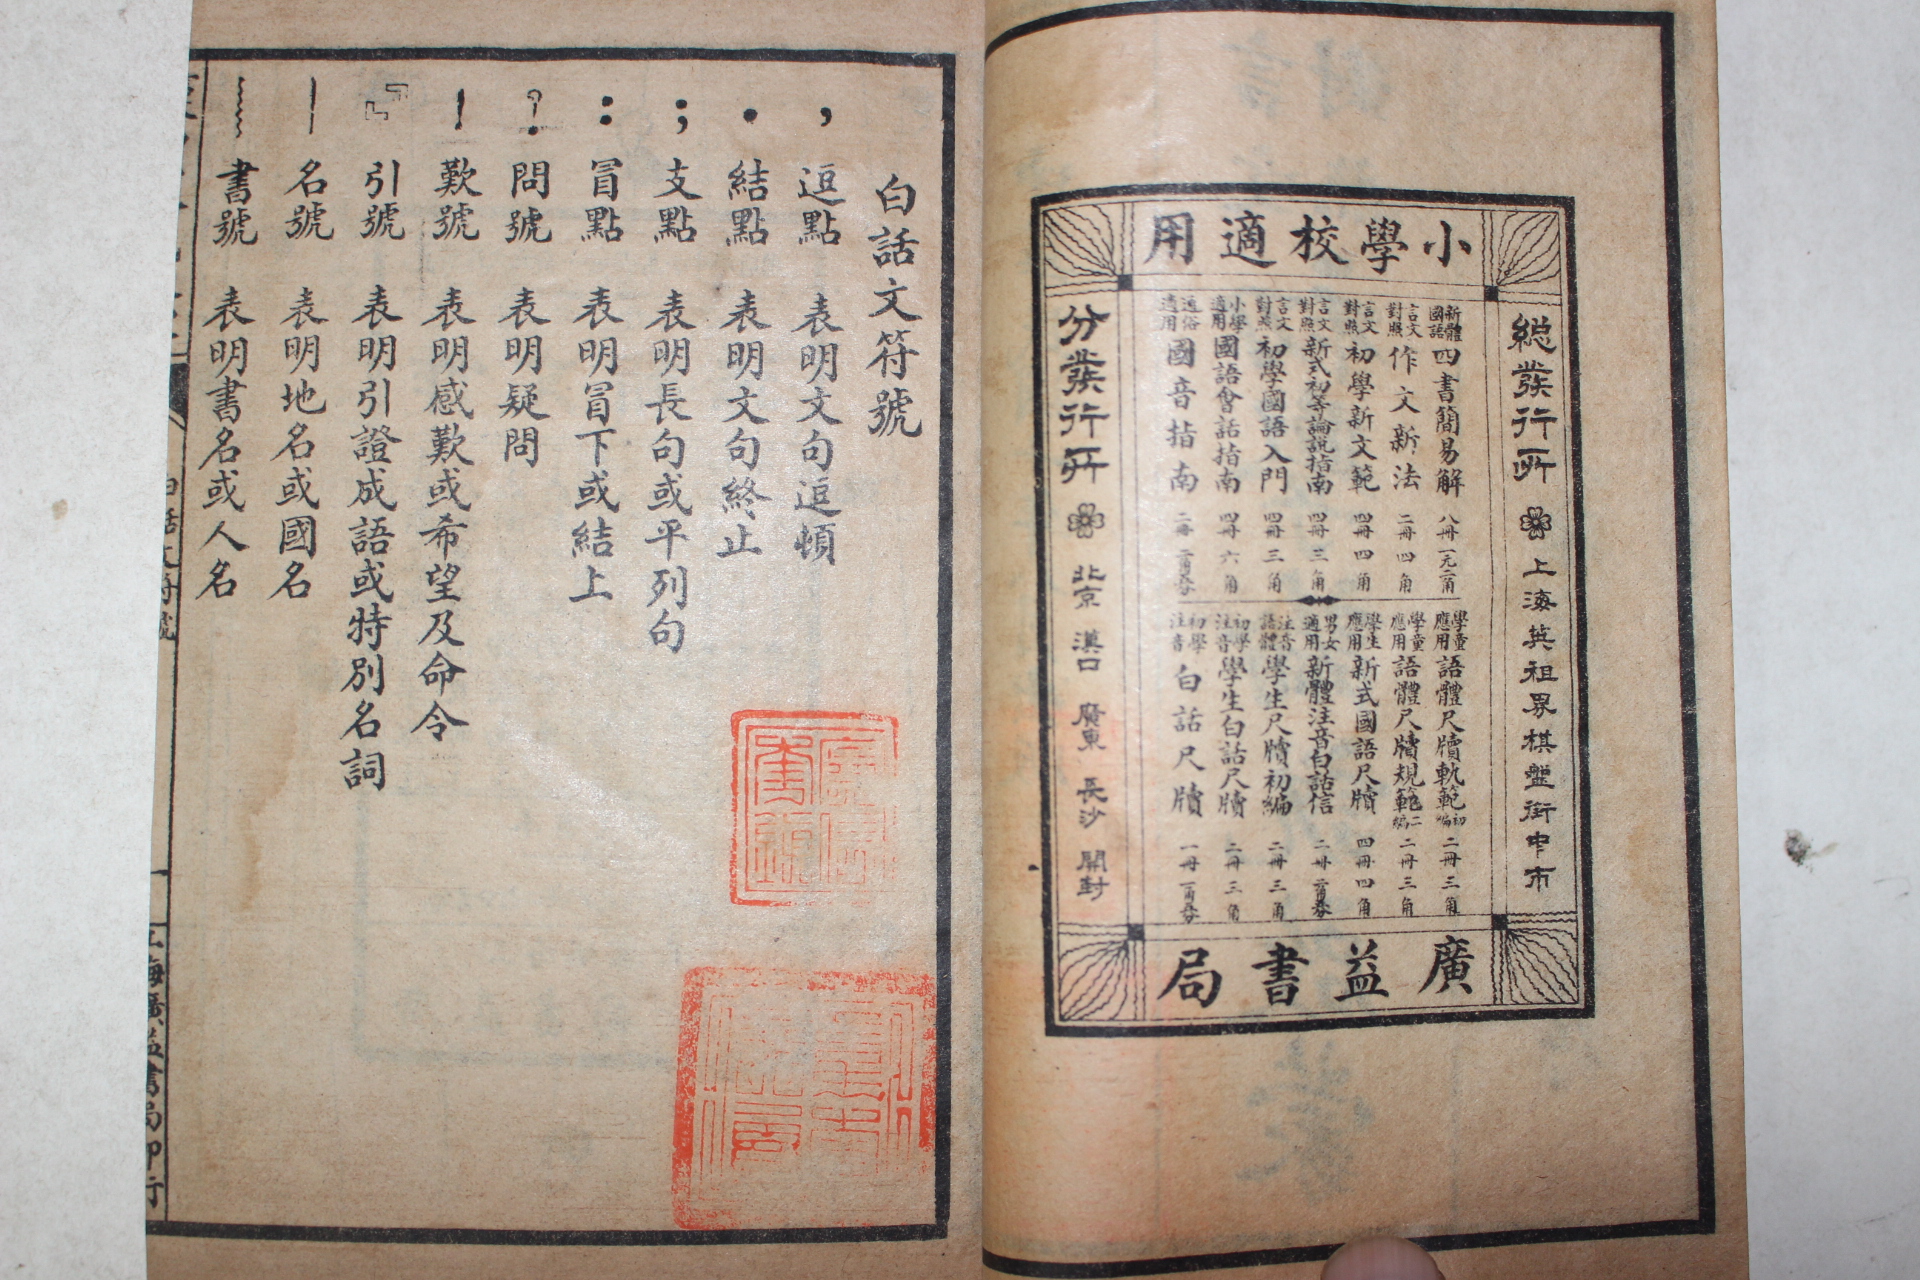 小學校適用
總發行所 上海英租界棋盤街中市
新體國語四書簡易解 八冊 一元二角
言文對照作文新法 二冊 四角
言文對照初學新文範 四冊 四角
言文對照新式初等論說指南 四冊 三角
言文對照初學國語入門 四冊 三角
小學適用國語會話指南 四冊 六角
通俗適用國音指南 二冊
學童應用語體尺牘軌範初編 二冊 三角
學童應用語體尺牘規範二編 二冊 三角
學生應用新式國語尺牘 四冊 四角
男女適用新體注音白話信 二冊
注音語體學生尺牘初編 二冊 三角
初學注音學生白話尺牘 二冊 三角
初學注音白話尺牘 一冊
分發行所 北京 漢口 廣東 長沙 開封
廣益書局
白話文符號
， 逗點 表明文句逗頓
． 結點 表明文句終止
； 支點 表明長句或平列句
： 冒點 表明冒下或結上
？ 問號 表明疑問
！ 歎號 表明感歎或希望及命令
『』 引號 表明引證成語或特別名詞
｜ 名號 表明地名或國名
﹏ 書號 表明書名或人名
白話文符號
一
上海廣益書局印行